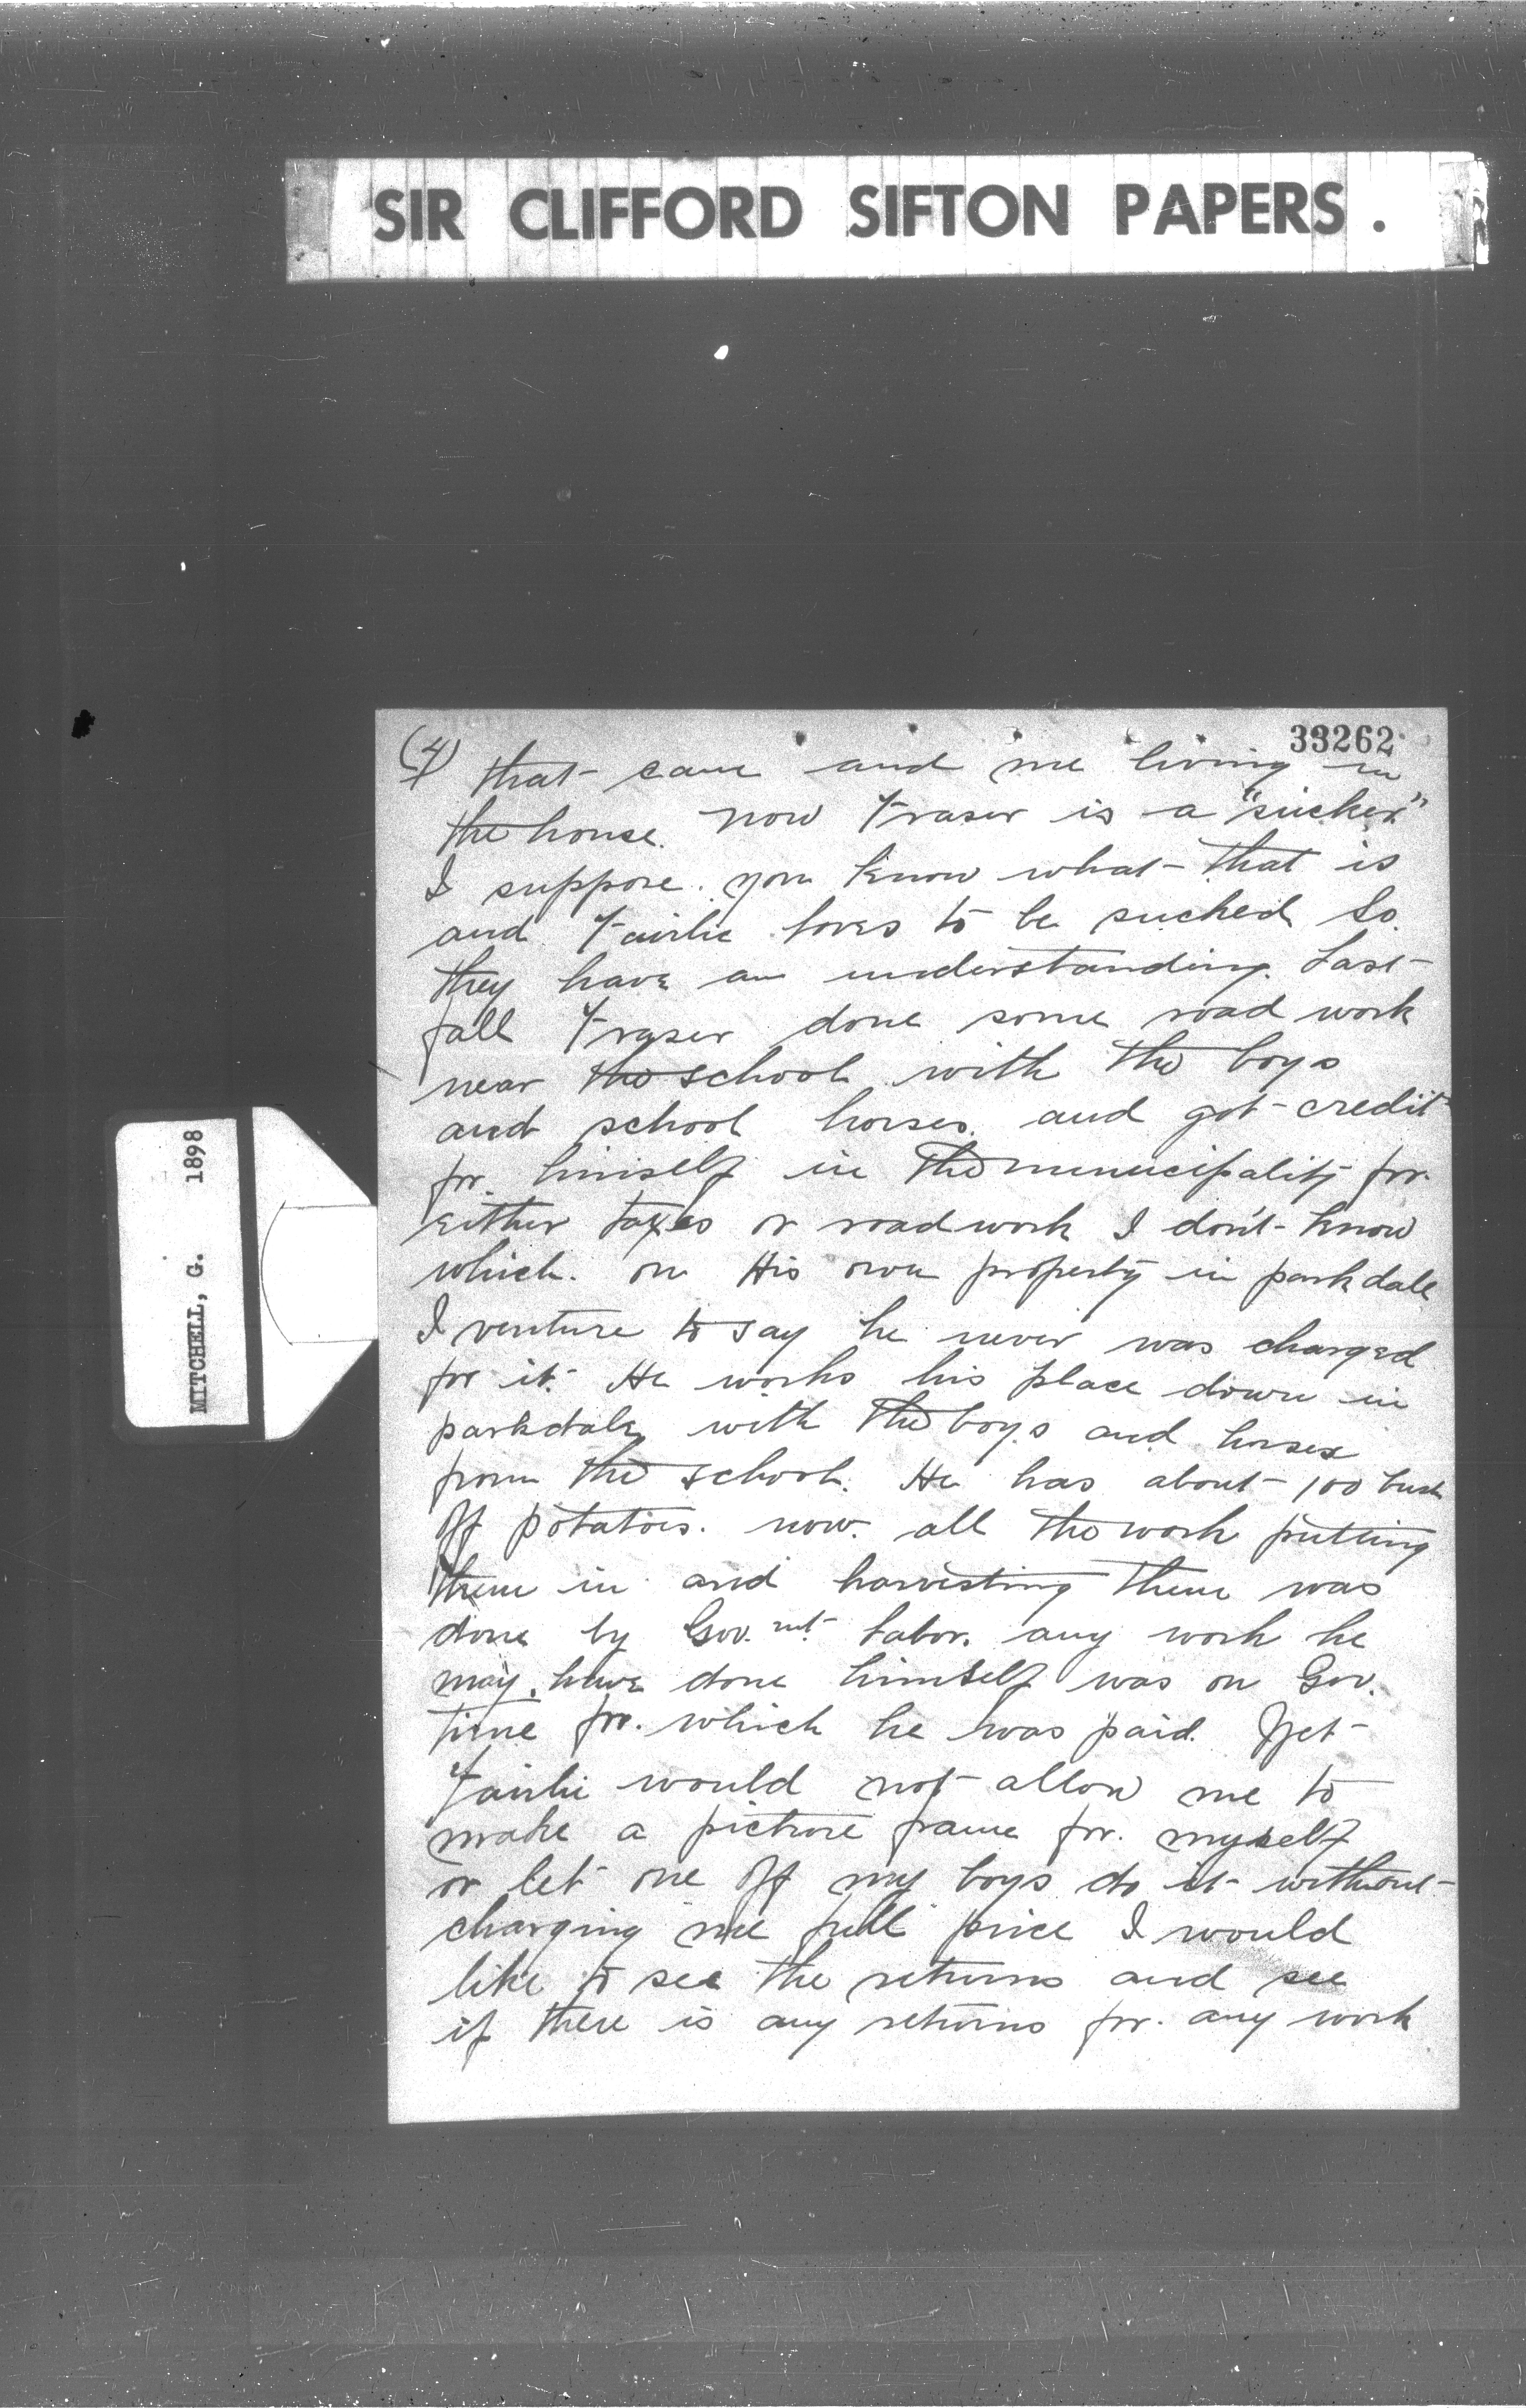 SIR CLIFFORD SIFTON PAPERS.
MITCHELL, G. 1898
33262
(4) that came and me living in
the house. now Fraser is a "sucker"
I suppose you know what that is
and Fairlie loves to be sucked so
they have an understanding. Last
fall Fraser done some road work
near the school with the boys
and school horses. and got credit
for himself in the municipality for
Either taxes or road work I don't know
which. on His own property in parkdale
I venture to say he never was charged
for it. He works his place down in
parkdale with the boys and horses
from the school. He has about 100 bush
off potatoes. now. all the work putting
them in and harvesting them was
done by Gov.mt. Labor. any work he
may have done himself was on Gov.
time for. which he was paid. Yet
Fairlie would not allow me to
make a picture frame for. myself
or let one off my boys do it without
charging me full price I would
like to see the returns and see
if there is any returns for. any work